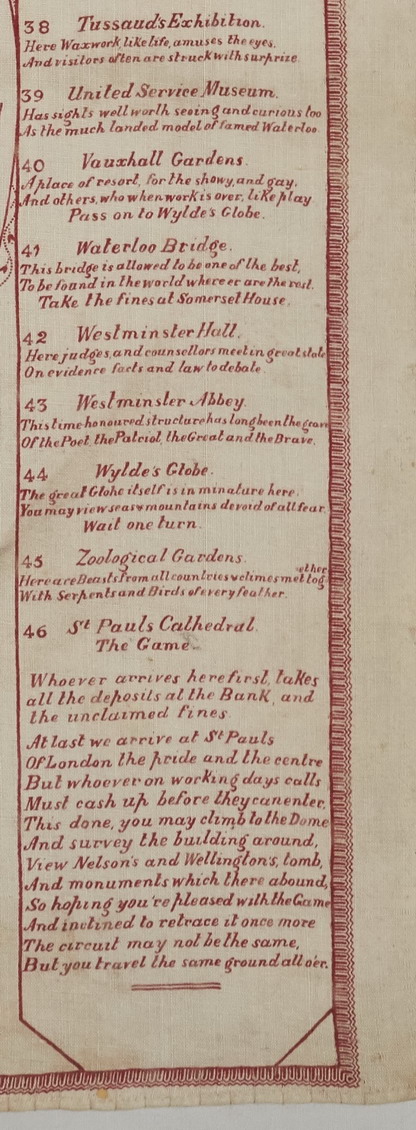 38 Tussaud's Exhibition.
Here Waxwork, like life, amuses the eyes.
And visitors often are struck with surprize.
39 United Service Museum.
Has sights well worth seeing and curious too
As the much landed model of famed Waterloo.
40 Vauxhall Gardens.
A place of resort, for the showy, and gay,
And others, who when work is over, like play
Pass on to Wylde's Globe.
41 Waterloo Bridge.
This bridge is allowed to be one of the best,
To be found in the world where er are the rest.
Take the fines at Somerset House.
42 Westminster Hall.
Here judges, and counsellors meet in great state
On evidence facts and law to debate.
43 Westminster Abbey.
This time honoured structure has long been the grave
Of the Poet, the Patriot, the Great and the Brave.
44 Wylde's Globe.
The great Globe itself is in minature here,
You may view seas & mountains devoid of all fear.
Wait one turn.
45 Zoological Gardens.
Here are Beasts from all countries & climes met tog-
ether
With Serpents and Birds of every feather.
46 St Pauls Cathedral.
The Game.
Whoever arrives here first, takes
all the deposits at the Bank, and
the unclaimed fines.
At last we arrive at St Pauls
Of London the pride and the centre
But whoever on working days calls
Must cash up before they can enter.
This done, you may climb to the Dome
And survey the building around,
View Nelson's and Wellington's, tomb,
And monuments which there abound,
So hoping you're pleased with the Game
And inclined to retrace it once more
The circuit may not be the same,
But you travel the same ground all o'er.